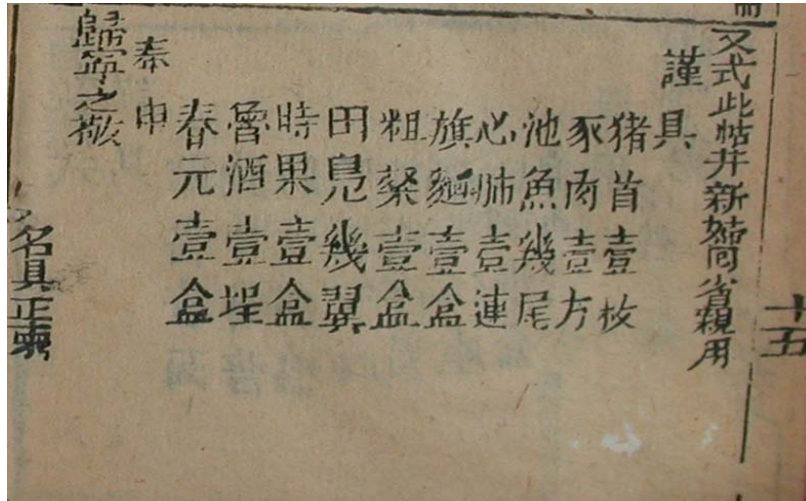 又式此帖并新婚回省親用
謹具
猪首壹枚
豕肉壹方
池魚幾尾
心肺壹連
旗麵壹盒
粗粲壹盒
田鳧幾翼
時果壹盒
魯酒壹埕
春元壹盒
奉申
歸寧之敬
名具正柬
十五